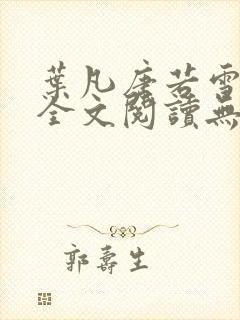 葉凡唐若雪
全文閱讀無
郭壽生